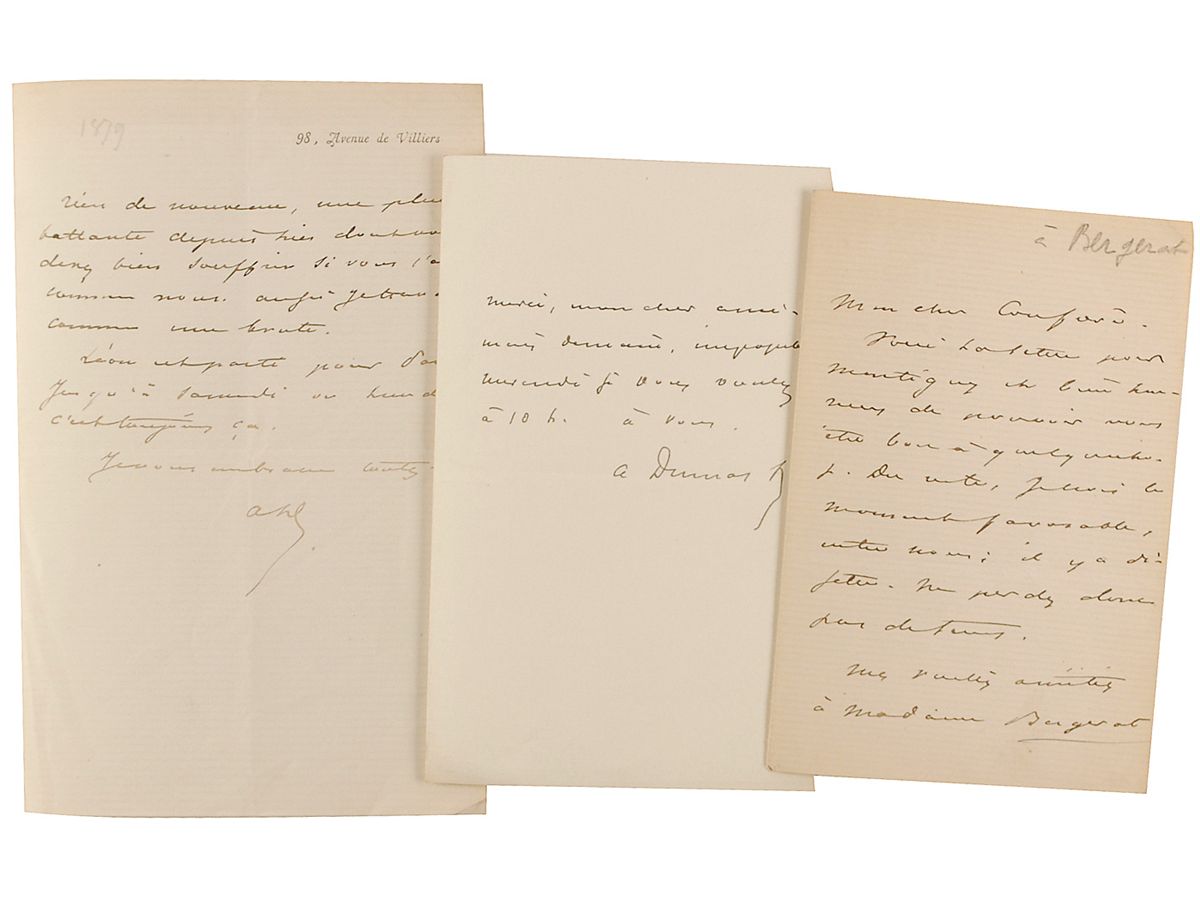 1879
98, Avenue de Villiers
rien de nouveau, une plu
battante depuis hier
bien souffrir si vous l'a
comme nous. aussi
comme une brute.
Léon est parti pour
Jusqu'à Samedi ou
c'est toujours ça.
Je vous embrasse
merci, mon cher ami-
mais demain, impossible
mercredi si vous voulez
à 10 h. à vous.
A Dumas f
à Bergerat
Mon cher Confrère.
Voici la lettre pour
Montigny et bien heu-
reux de pouvoir vous
être bon à quelque cho-
se. Du reste, je crois le
moment favorable,
entre nous; il y a di-
sette. Ne perdez donc
pas de temps.
Mes amitiés
à Madame Bergerat